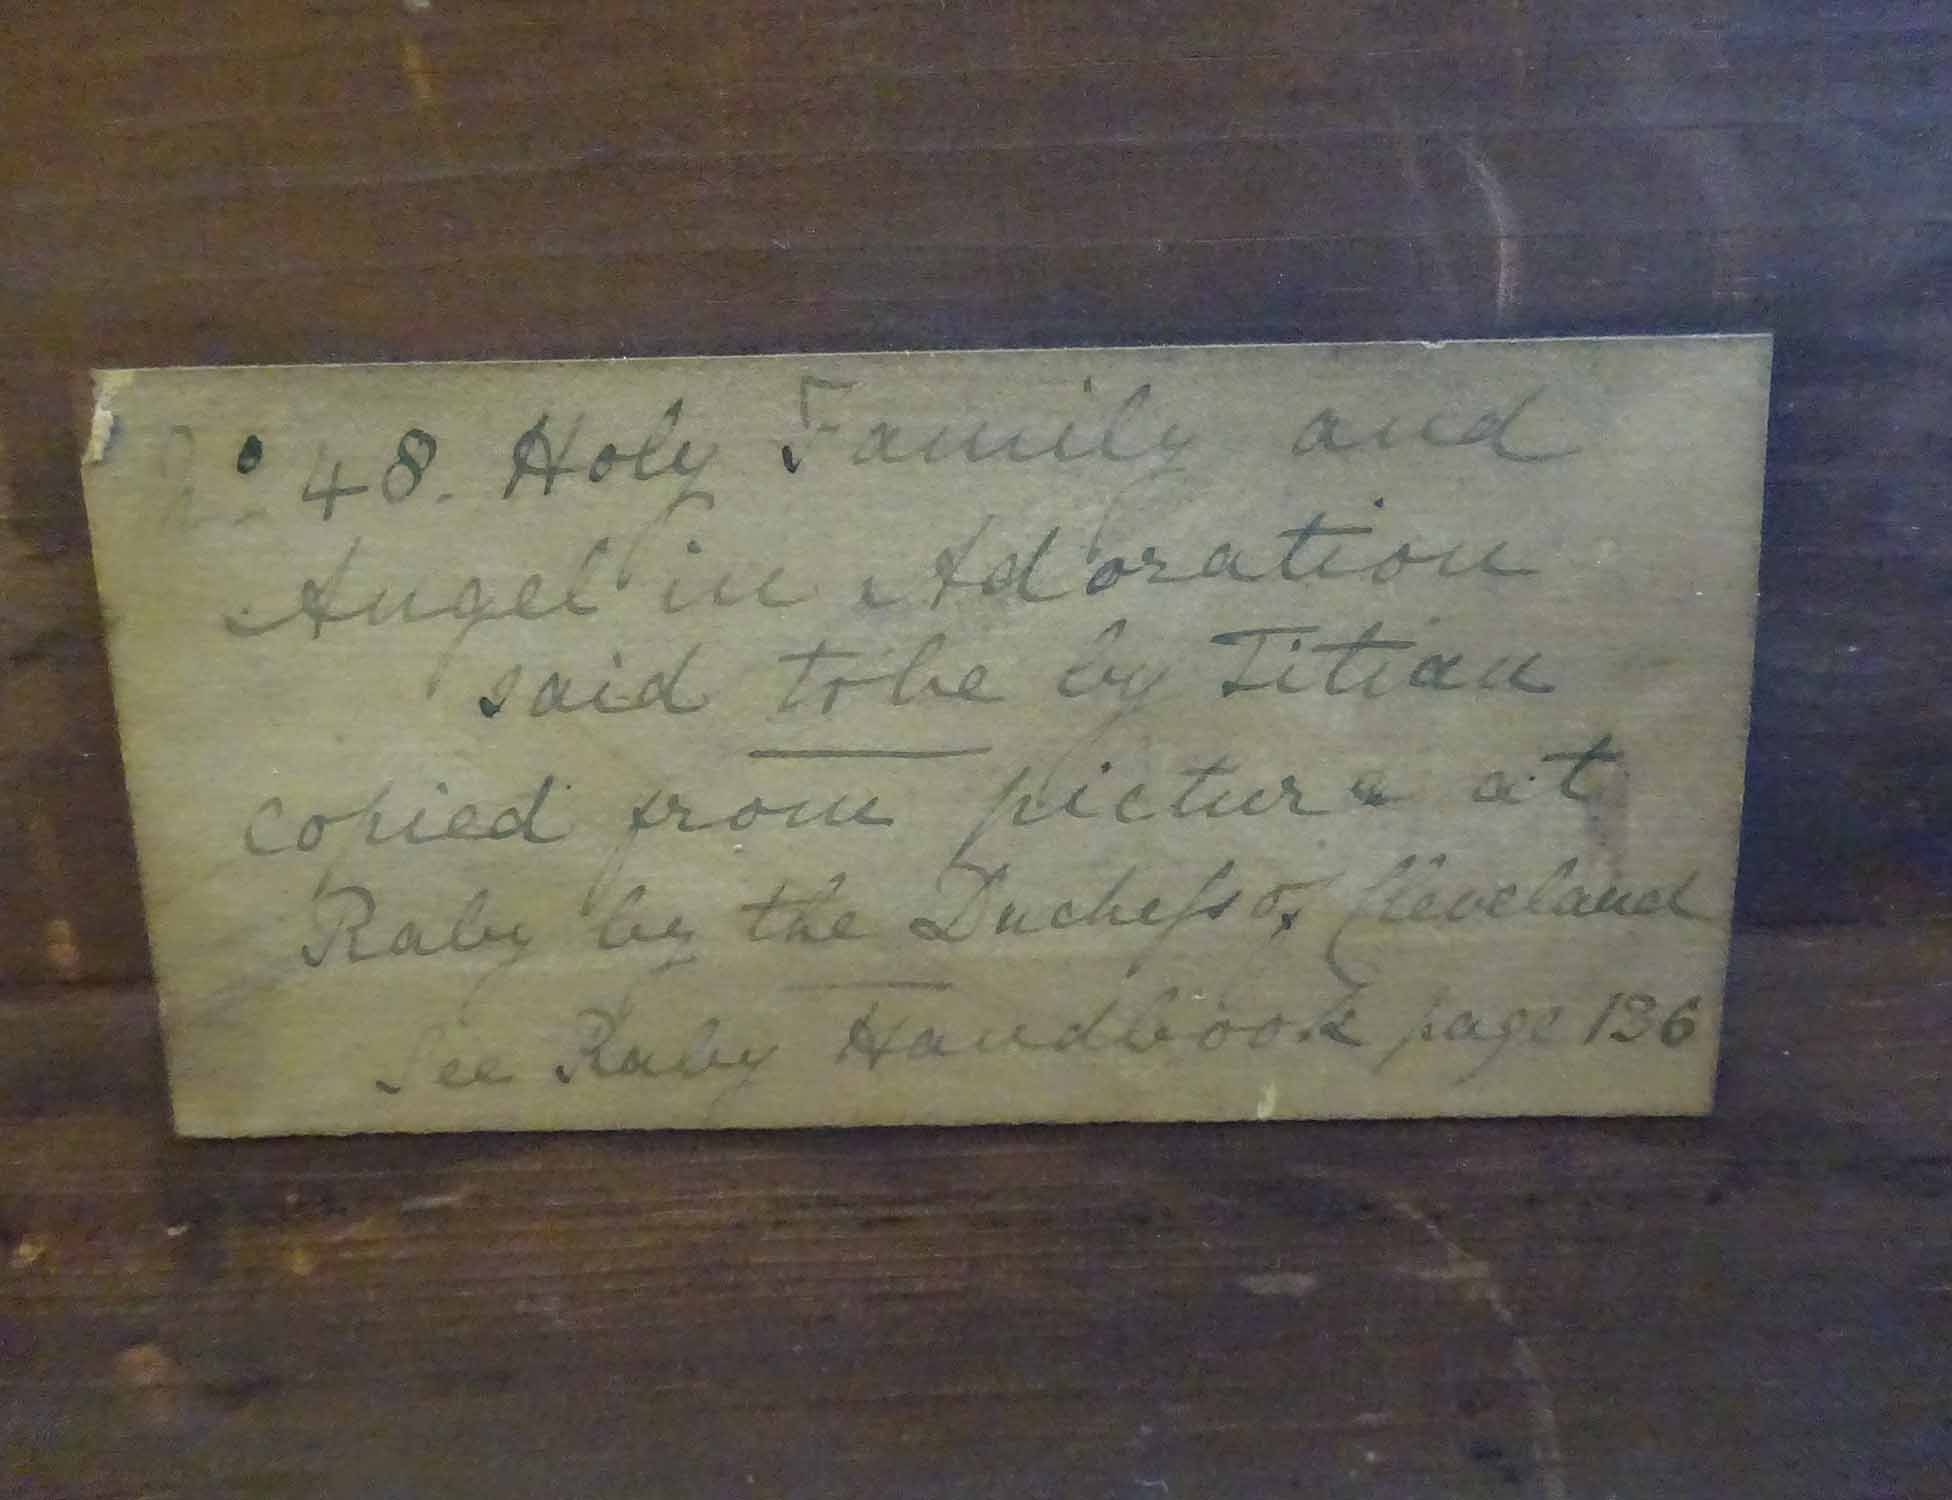 No 48. Holy Family and
Angel in Adoration
said to be by Titian
copied from picture at
Raby by the Duchess of Cleveland
See Raby Handbook page 136